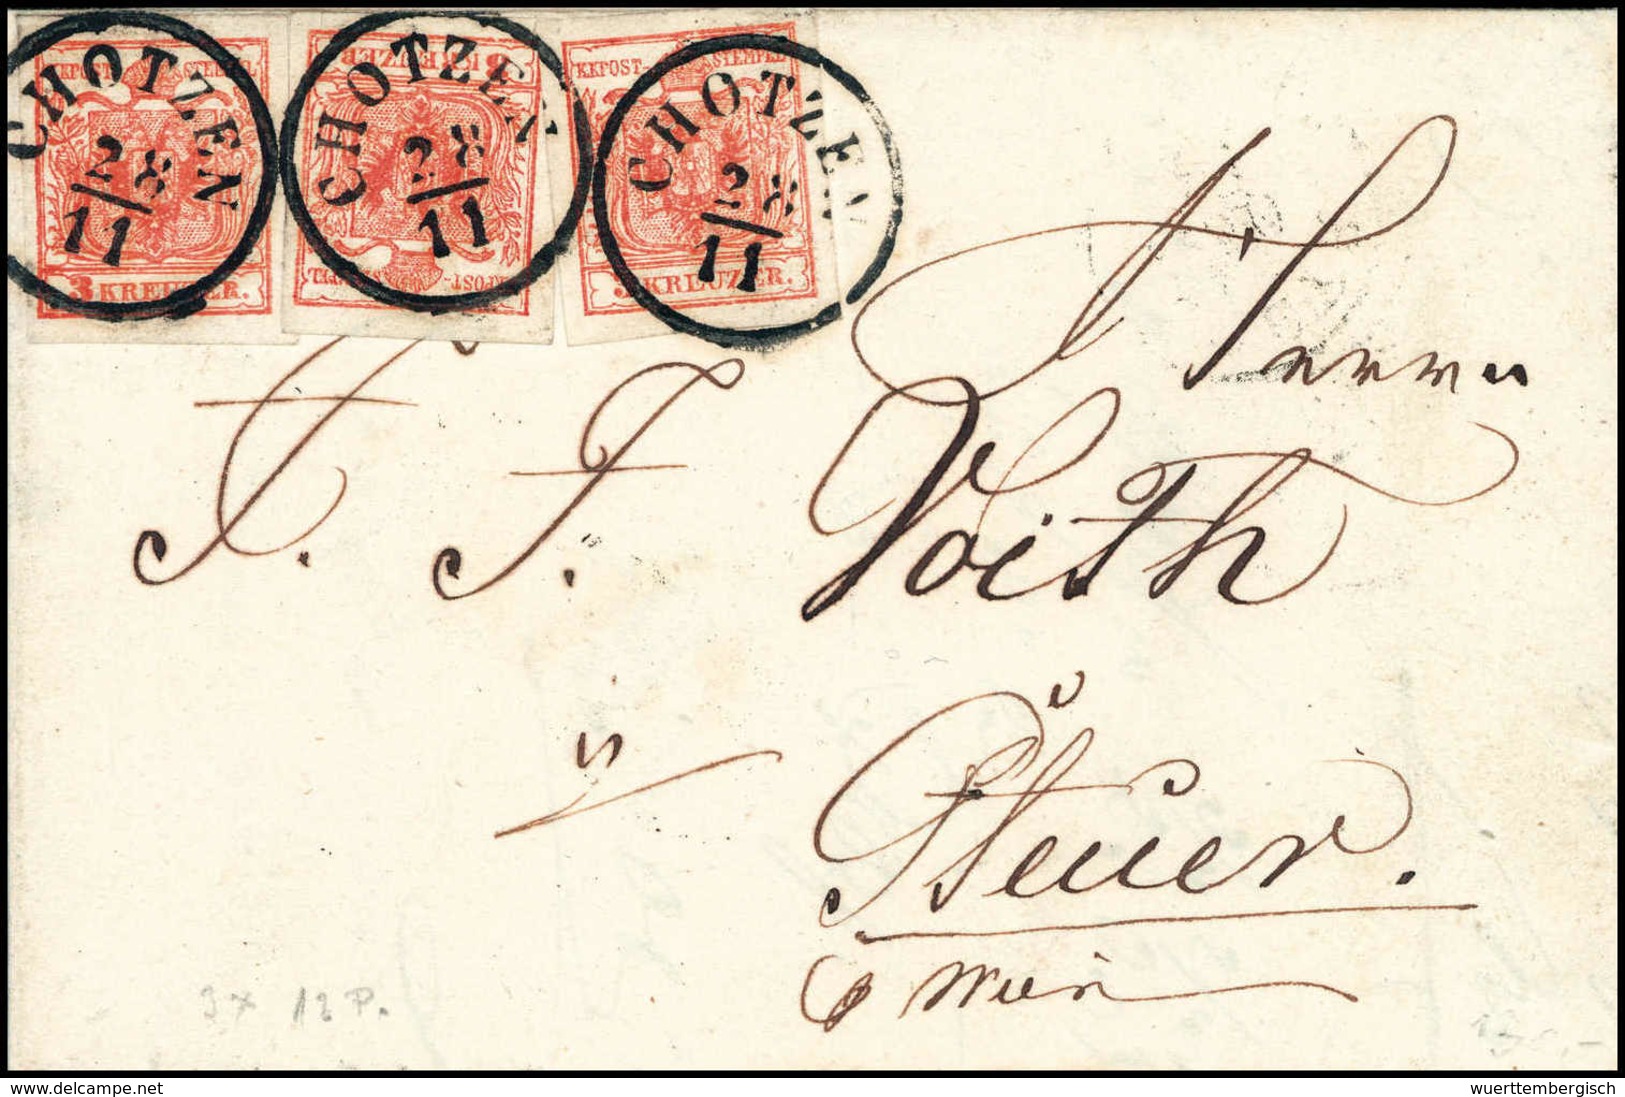 KKPOST- STEMPEL
3 KREUZER.
CHOTZEN
28
11
3 KREUZER
KKPOST- STEMPEL
CHOTZEN
28
11
KKPOST- STEMPEL
3 KREUZER.
CHOTZEN
28
11
Herrn
F. F. Voith
in
Steuer.
p Wien
3 x 12 P.
© www.delcampe.net
wuerttembergisch